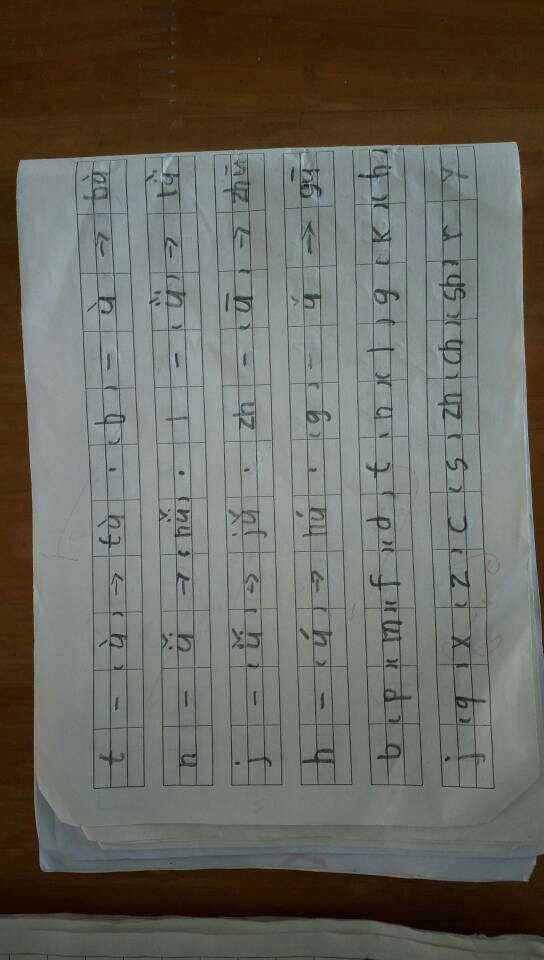 t - (ù) → tù . (b) - ù → bù
n - ǚ → (nǚ) . l - (ǜ) → lǜ
j - (ǚ) → jǔ . zh - (ū) → zhū
h - (ú) → hú . (g) - ū → gū
b (p) (m) (f) (d) t (n) (l) g (k) (h)
j (q) x (z) c (s) zh (ch) (sh) r y